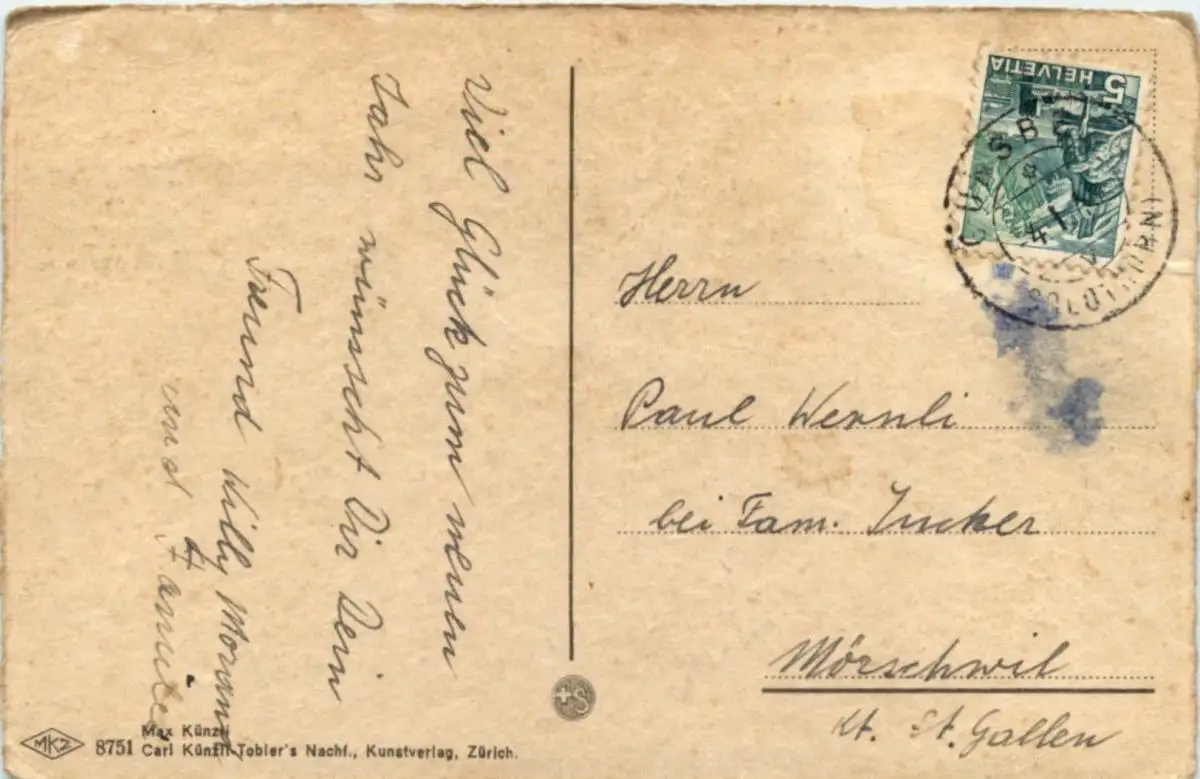 Viel Glück zum neuen
Jahr wünscht Dir Dein
Freund Willy
und Familie
Herrn
Paul Wernli
bei Fam. Jucker
Mörschwil
Kt. St. Gallen
HELVETIA 5
(SOLOTHURN)
MKZ
8751
Max Künzli
Carl Künzli-Tobler's Nachf., Kunstverlag, Zürich.